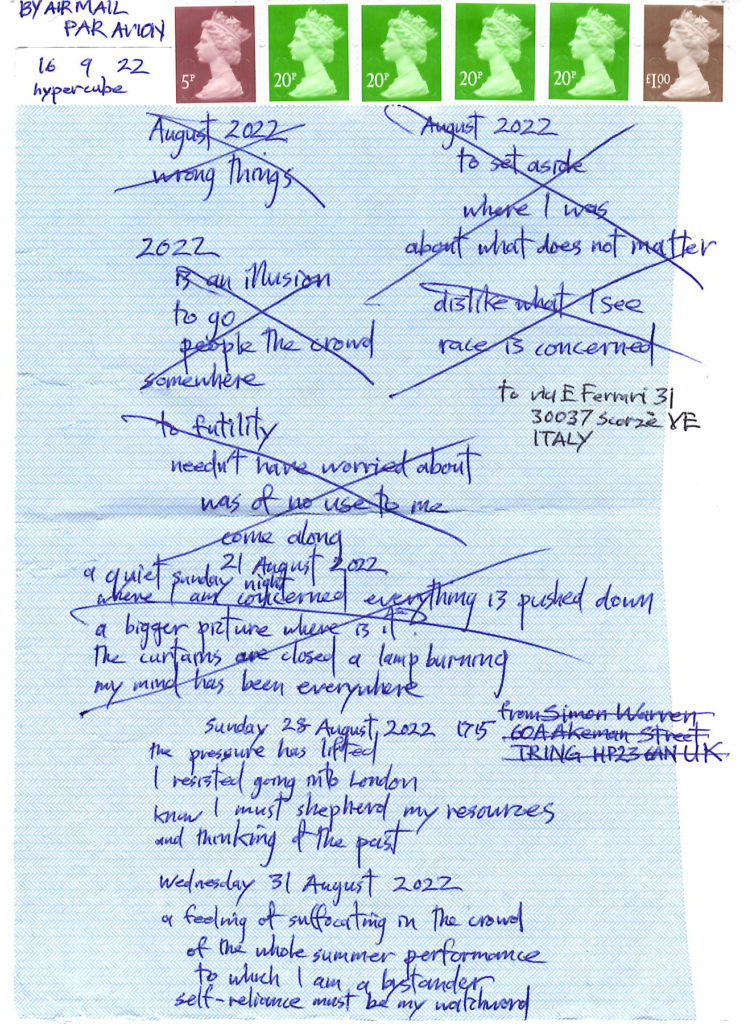 BY AIR MAIL
PAR AVION
16 9 22
hypercube
5P
20P
20P
20P
20P
£1.00
August 2022
wrong things
2022
is an illusion
to go
people the crowd
somewhere
August 2022
to set aside
where I was
about what does not matter
dislike what I see
race is concerned
to via E Ferrari 31
30037 Scorzè VE
ITALY
to futility
needn't have worried about
was of no use to me
come along
21 August 2022
a quiet sunday night
where I am concerned everything is pushed down
a bigger picture where is it?
the curtains are closed a lamp burning
my mind has been everywhere
from Simon Warren
60A Akeman Street
TRING HP23 6AN UK
Sunday 28 August 2022 1715
the pressure has lifted
I resisted going into London
know I must shepherd my resources
and thinking of the past
Wednesday 31 August 2022
a feeling of suffocating in the crowd
of the whole summer performance
to which I am a bystander
self-reliance must be my watchword